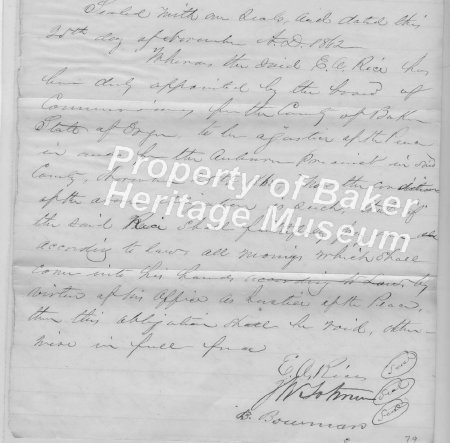 Sealed with our Seals, and dated this
25th day of November A.D. 1862
Whereas the said E. C. Rice has
been duly appointed by the board of
Commissioners, for the County of Baker
State of Oregon to be a Justice of the Peace
in and for the Auburn Precinct in said
County, the condition
of the above is such, if
the said Rice Shall
according to law, all moneys which shall
come into his hands according to law, by
virtue of his Office as Justice of the Peace,
then this obligation shall be void, other-
wise in full force
E. C. Rice Seal
Seal
B. Bowman Seal
79
Property of Baker
Heritage Museum